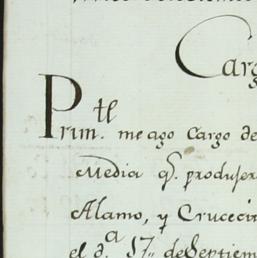 Carg
Prim.tl me ago Cargo de
Media q.e produjer
Alamo, y Crucecit
el d.a 17,, de Septiem